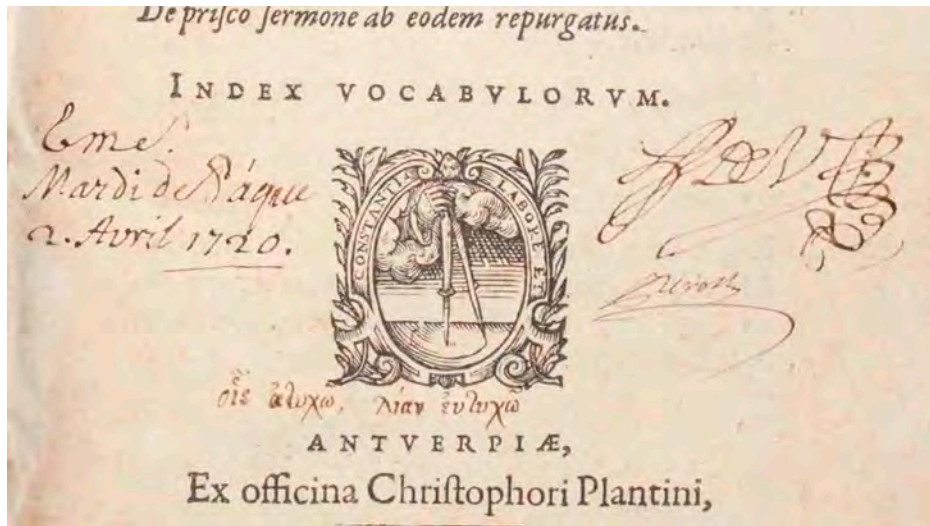 De priſco ſermone ab eodem repurgatus.
INDEX VOCABVLORVM.
Eme.
Mardi de Pâque
2. Avril 1720.
CONSTANTIA
LABORE ET
ἀτυχῶ, λίαν εὐτυχῶ
ANTVERPIÆ,
Ex officina Chriſtophori Plantini,